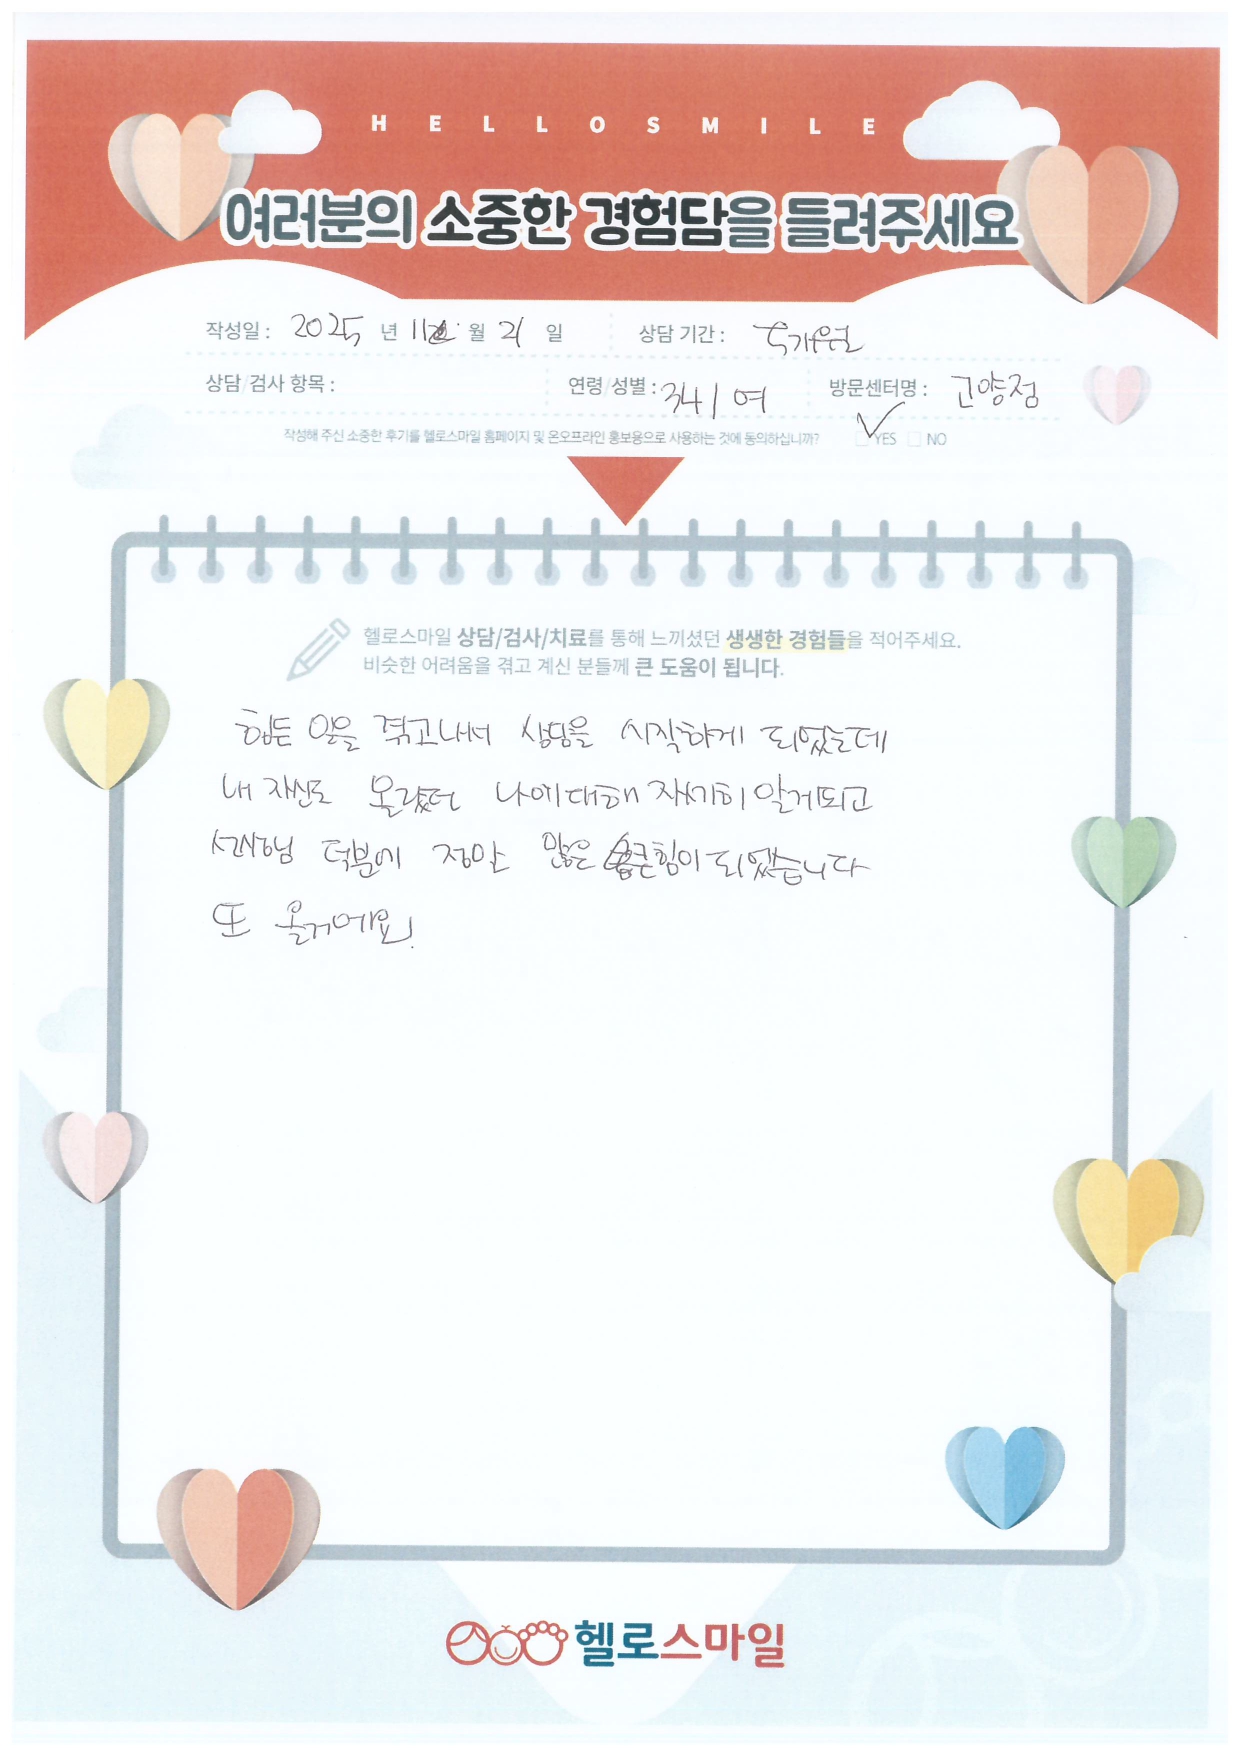 HELLOSMILE
여러분의 소중한 경험담을 들려주세요
작성일 : 2025 년 11 월 21 일 상담 기간 : 개월
상담/검사 항목 : 연령/성별 : 34 / 여 방문센터명 : 고양점
작성해 주신 소중한 후기를 헬로스마일 홈페이지 및 온오프라인 홍보용으로 사용하는 것에 동의하십니까? YES NO
헬로스마일 상담/검사/치료를 통해 느끼셨던 생생한 경험들을 적어주세요.
비슷한 어려움을 겪고 계신 분들께 큰 도움이 됩니다.
힘든 일을 겪고나서 상담을 시작하게 되었는데
내 자신도 몰랐던 나에대해 자세히 알게되고
선생님 덕분에 정말 많은 큰힘이 되었습니다
또 올거에요.
헬로스마일